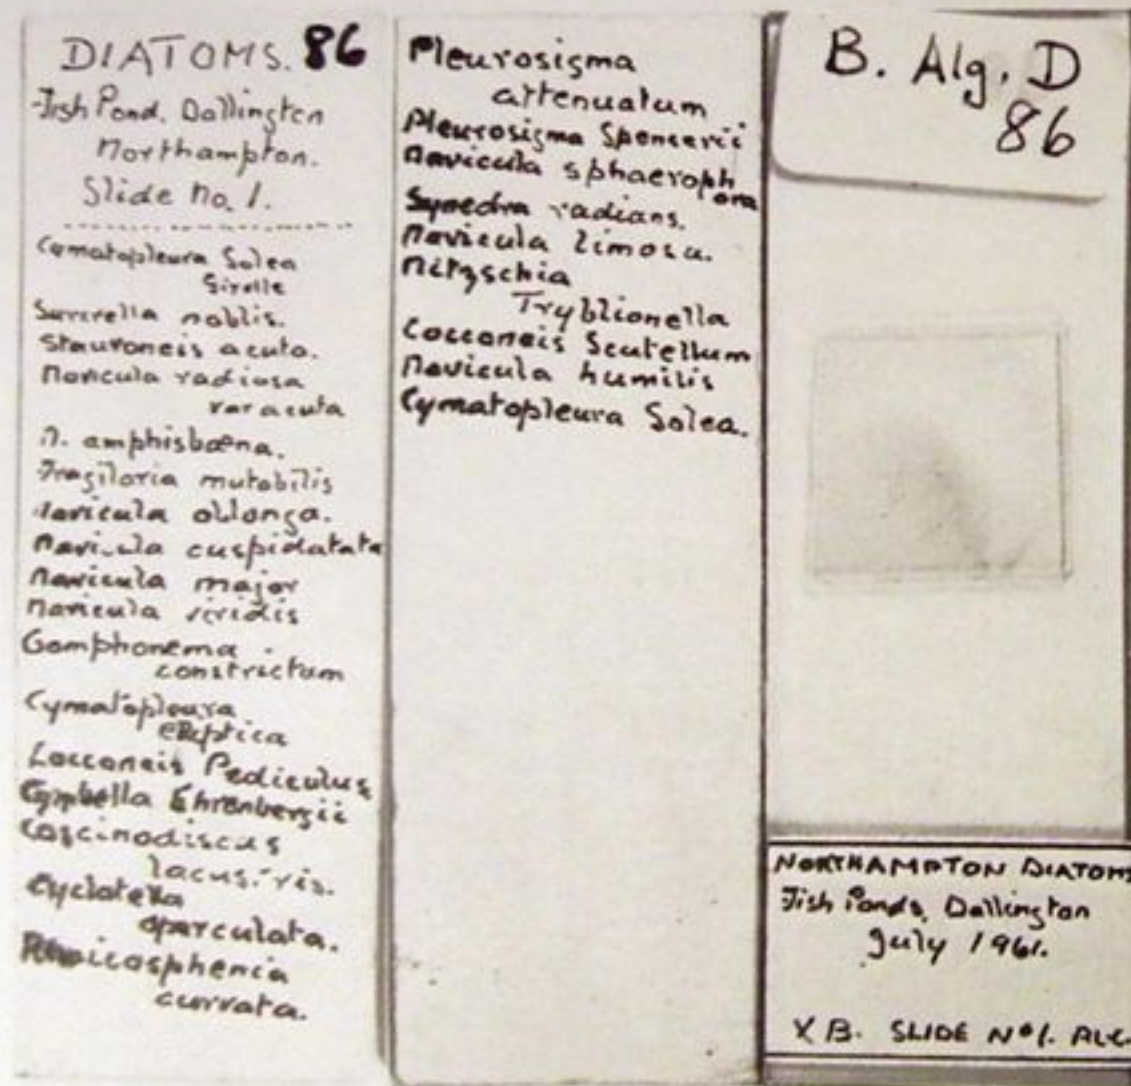 DIATOMS. 86
Fish Pond. Dallington
Northampton.
Slide No. 1.
Cymatopleura Solea
Surirella noblis.
Stauroneis acuta.
Navicula radiosa
var acuta
N. amphisbaena.
Fragilaria mutabilis
Navicula oblonga.
Navicula cuspidatata
Navicula major
Navicula viridis
Gomphonema
constrictum
Cymatopleura
eliptica
Cocconeis Pediculus
Cymbella Ehrenbergii
Coscinodiscus
lacustris.
Cyclotella
operculata.
Rhoicosphenia
currata.
Pleurosigma
attenuatum
Pleurosigma Spencerii
Navicula sphaeroph
ora
Synedra radians.
Navicula limosa.
Nitzschia
Tryblionella
Cocconeis Scutellum
Navicula humilis
Cymatopleura Solea.
B. Alg. D
86
NORTHAMPTON DIATOMS
Fish Ponds, Dallington
July 1961.
X B. SLIDE No 1. ALG.